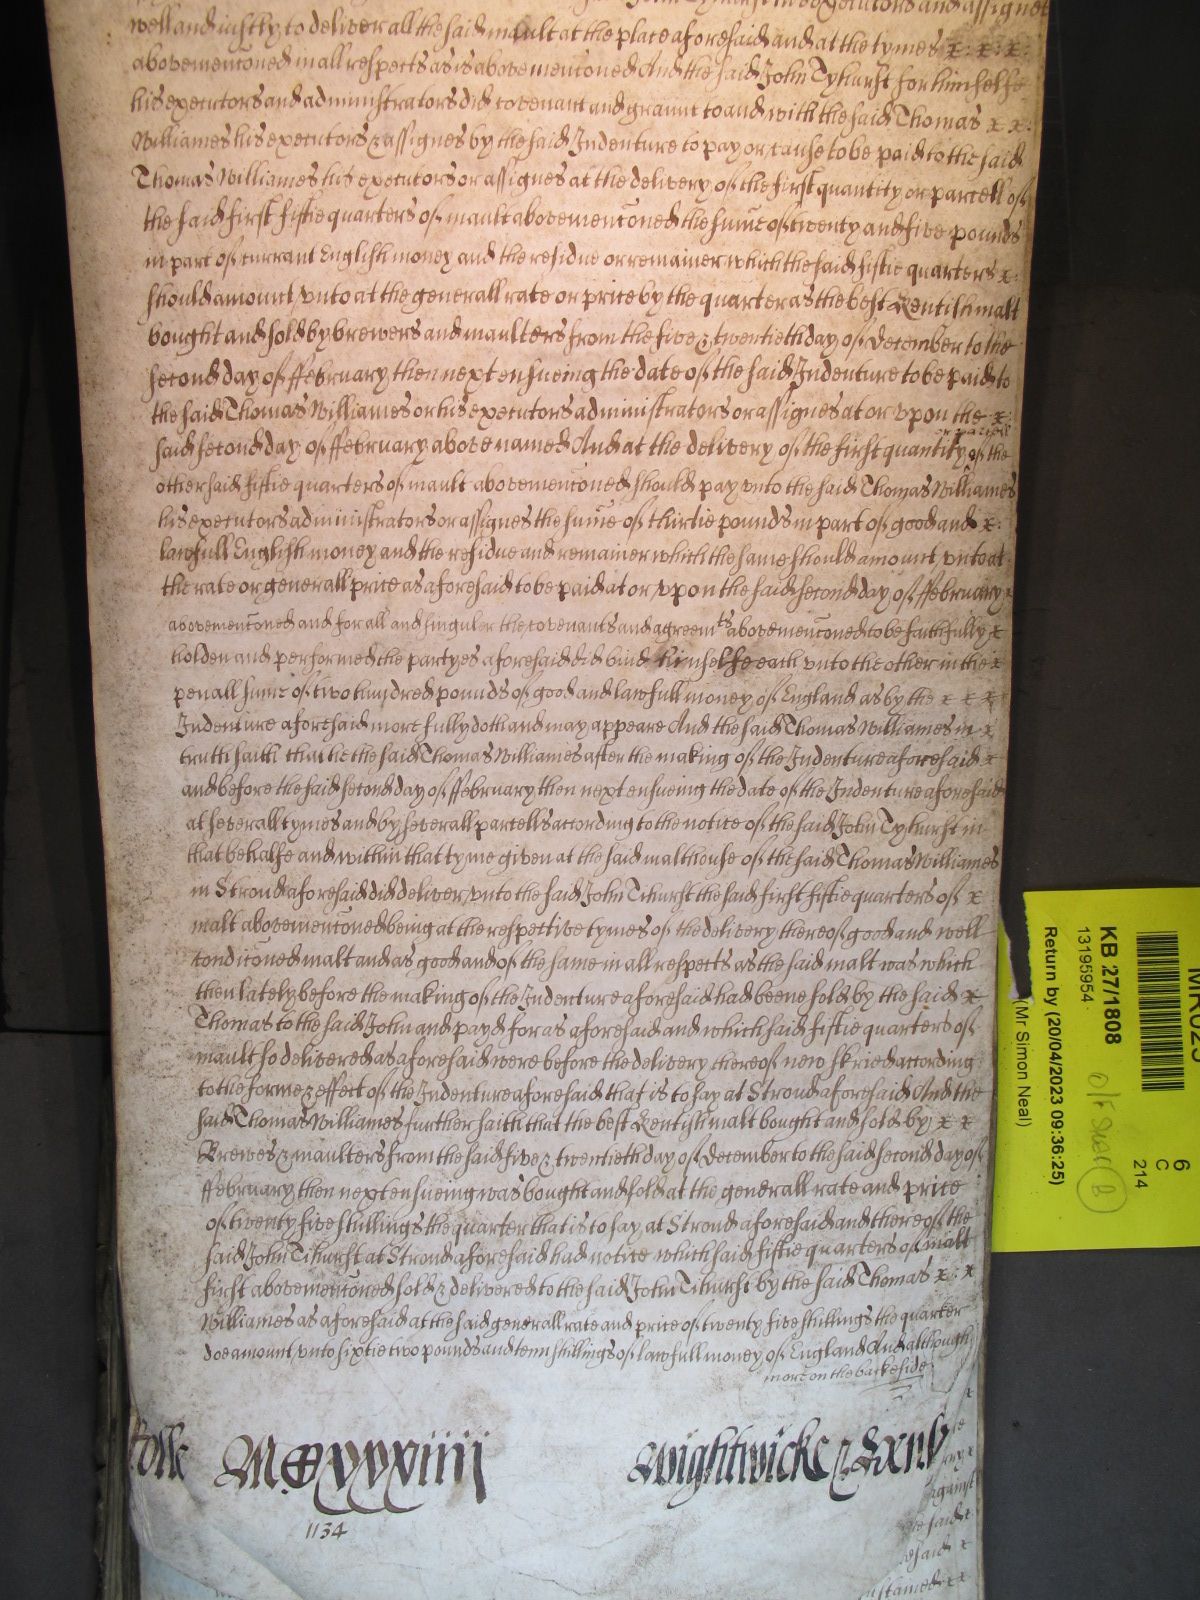 executors and assignes
well and justly to deliver all the said mault at the place aforesaid and at the tymes x: x: x:
abovemenconed in all respects as is abovemenconed And the said John Tyhurst for himselfe
his executors and administrators did covenant and graunt to and with the said Thomas x x:
Williames his executors & assignes by the said Indenture to pay or cause to be paid to the said
Thomas Williames his executors or assignes at the delivery of the first quantity or parcell of
the said first fiftie quarters of mault abovemenconed the sume of twenty and five pounds
in part of currant English money and the residue or remainer which the said fiftie quarters x:
should amount unto at the generall rate or price by the quarter as the best Kentish malt
bought and sold by brewers and maulters from the five & twentieth day of December to the
second day of ffebruary then next ensueing the date of the said Indenture to be paid to
the said Thomas Williames or his executors administrators or assignes at or upon the x:
said second day of ffebruary above named And at the delivery of the first quantity or parcell of the
other said fiftie quarters of mault abovemenconed should pay unto the said Thomas Williames
his executors administrators or assignes the sume of thirtie pounds in part of good and x:
lawfull English money and the residue and remainer which the same should amount unto at
the rate or generall price as aforesaid to be paid at or upon the said second day of ffebruary x
abovemenconed and for all and singuler the covenants and agreemts abovemenconed to be faithfully x
holden and performed the partyes aforesaid did bind himselfe each unto the other in the x
penall sume of two hundred pounds of good and lawfull money of England as by the x x x
Indenture aforesaid more fully doth and may appeare And the said Thomas Williames in x
truth saith that he the said Thomas Williames after the making of the Indenture aforesaid x
and before the said second day of ffebruary then next ensueing the date of the Indenture aforesaid
at severall tymes and by severall parcells according to the notice of the said John Tyhurst in
that behalfe and within that tyme given at the said malthouse of the said Thomas Williames
in Stroud aforesaid did deliver unto the said John Tihurst the said first fiftie quarters of x
malt abovemenconed being at the respective tymes of the delivery thereof good and well
condiconed malt and as good and of the same in all respects as the said malt was which
then lately before the making of the Indenture aforesaid had beene sold by the said x
Thomas to the said John and payd for as aforesaid and which said fiftie quarters of
mault so delivered as aforesaid were before the delivery thereof new skried according
to the forme & effect of the Indenture aforesaid that is to say at Stroud aforesaid And the
said Thomas Williames further saith that the best Kentish malt bought and sold by x x
Brewes & maulters from the said five & twentieth day of December to the said second day of
ffebruary then next ensueing was bought and sold at the generall rate and price
of twenty five shillings the quarter that is to say at Stroud aforesaid and thereof the
said John Tihurst at Stroud aforesaid had notice which said fiftie quarters of malt
first abovemenconed sold & delivered to the said John Tihurst by the said Thomas x: x
Williames as aforesaid at the said generall rate and price of twenty five shillings the quarter
doe amount unto sixtie two pounds and tenn shillings of lawfull money of England And although
more on the backeside
Wightwicke &
1134
against
said x
said x
KB 27/1808
13195954
Return by (20/04/2023 09:36:25)
(Mr Simon Neal)
6
C
214